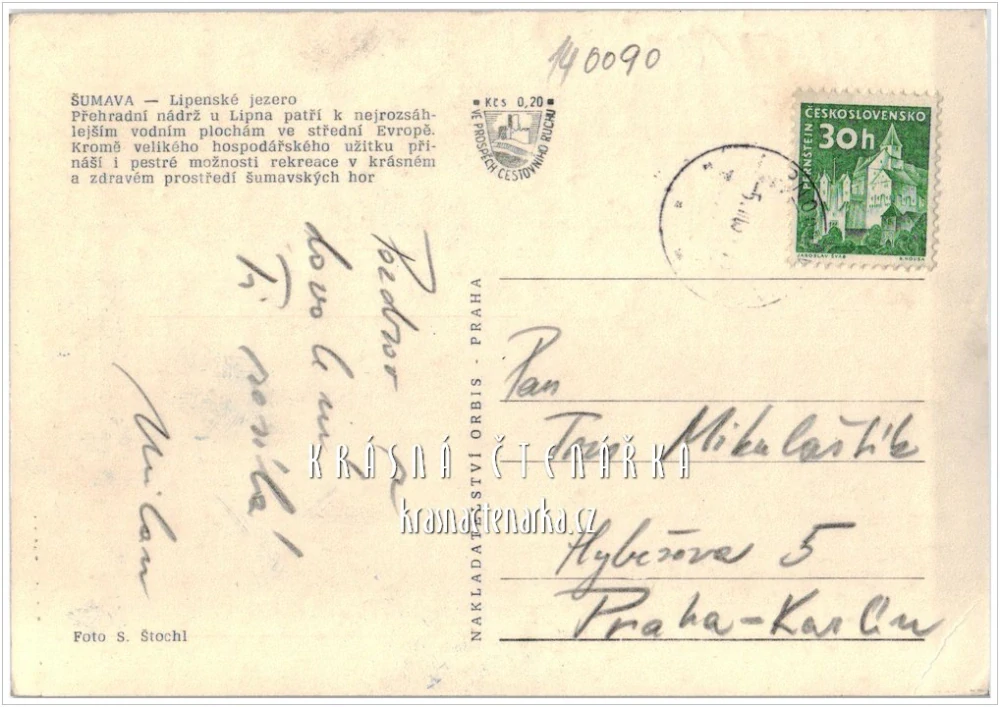 140090
ŠUMAVA — Lipenské jezero
Přehradní nádrž u Lipna patří k nejrozsáh-
lejším vodním plochám ve střední Evropě.
Kromě velikého hospodářského užitku při-
náší i pestré možnosti rekreace v krásném
a zdravém prostředí šumavských hor
Kčs 0,20
VE PROSPĚCH CESTOVNÍHO RUCHU
ČESKOSLOVENSKO
30h
PERNŠTEJN
JAROSLAV ŠVÁB
Pozdrav
Ti posílá
Milan
NAKLADATELSTVÍ ORBIS - PRAHA
Pan
Mikulaštík
Hybešova 5
Praha - Karlín
KRÁSNÁ ČTENÁŘKA
krasnactenarka.cz
Foto S. Štochl